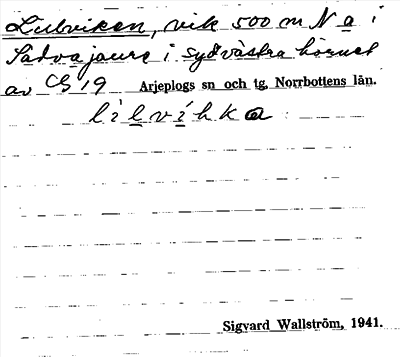 Lulviken, vik 500 m N a i
Sädvajaure i sydvästra hörnet
av CG 19 Arjeplogs sn och tg, Norrbottens län.
lilvihka
Sigvard Wallström, 1941.